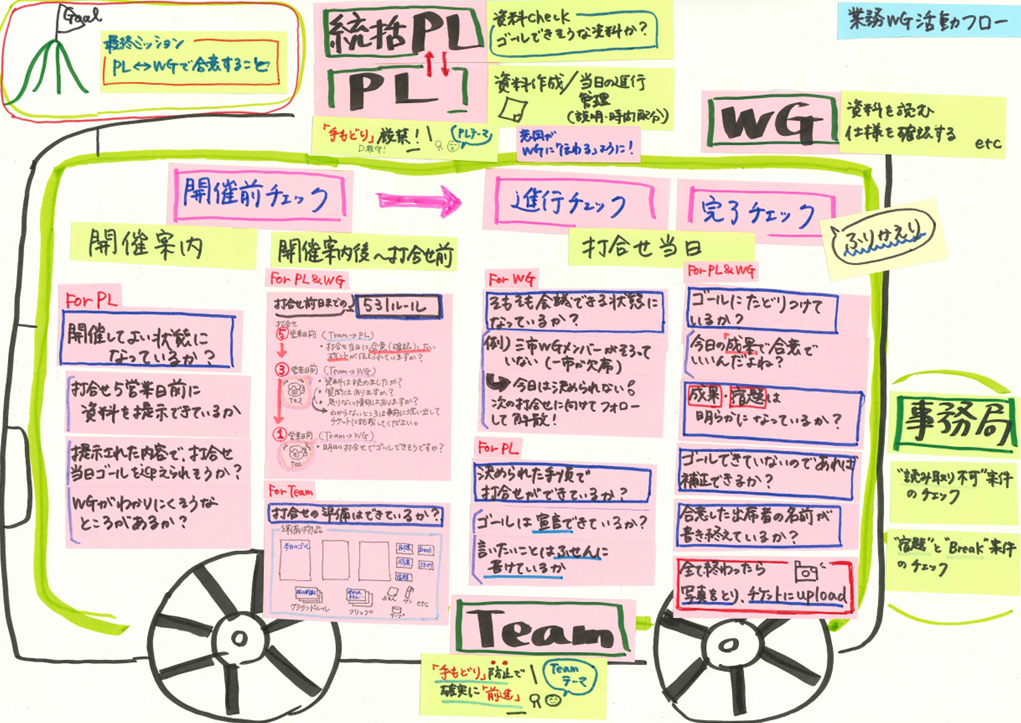 Goal
最終ミッション
PL⇔WGで合意すること
統括PL
資料check
ゴールできそうな資料か?
業務WG活動フロー
PL
資料作成/当日の進行
管理
(説明・時間配分)
WG
資料を読む
仕様を確認する
etc
「手もどり」厳禁!
PLテーマ
意図が
WGに"伝わる"ように!
開催前チェック
進行チェック
完了チェック
ふりかえり
開催案内
開催案内後〜打合せ前
打合せ当日
For PL
開催してよい状態に
なっているか?
打合せ5営業日前に
資料を提示できているか
提示された内容で、打合せ
当日ゴールを迎えられそうか?
WGがわかりにくそうな
ところがあるか?
For PL&WG
打合せ前日までの 531ルール
打合せ
⑤営業日前 (Team→PL)
・打合せ当日に合意(確認)したい
③営業日前 (Team→WG)
・資料は読めましたか?
・質問はありますか?
・足りない情報はありますか?
①営業日前 (Team→WG)
・明日の打合せでゴールできそうですか?
For Team
打合せの準備はできているか?
準備物品
本日のゴール
Break
グラウンドルール
クリップ
ふせん
ペン
テープ
etc
For WG
そもそも会議できる状態に
なっているか?
例) 三市WGメンバーがそろって
いない (一市が欠席)
今日は決められない。
次の打合せに向けてフォロー
して解散!
For PL
決められた手順で
打合せができているか?
ゴールは宣言できているか?
言いたいことはふせんに
書けているか
For PL&WG
ゴールにたどりつけて
いるか?
今日の成果で合意で
いいんだよね?
成果・宿題は
明らかになっているか?
ゴールできていないのであれば
補正できるか?
合意した出席者の名前が
書き終えているか?
全て終わったら
写真をとり、チケットにupload
事務局
"読み取り不可"案件
のチェック
"宿題"と"Break"案件
のチェック
Team
「手もどり」防止で
確実に「前進」
Team
テーマ